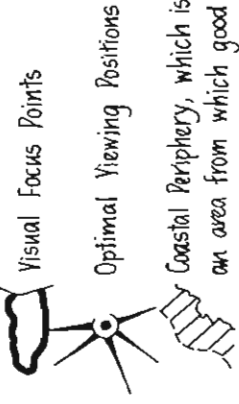 Visual Focus Points
Optimal Viewing Positions
Coastal Periphery, which is
an area from which good